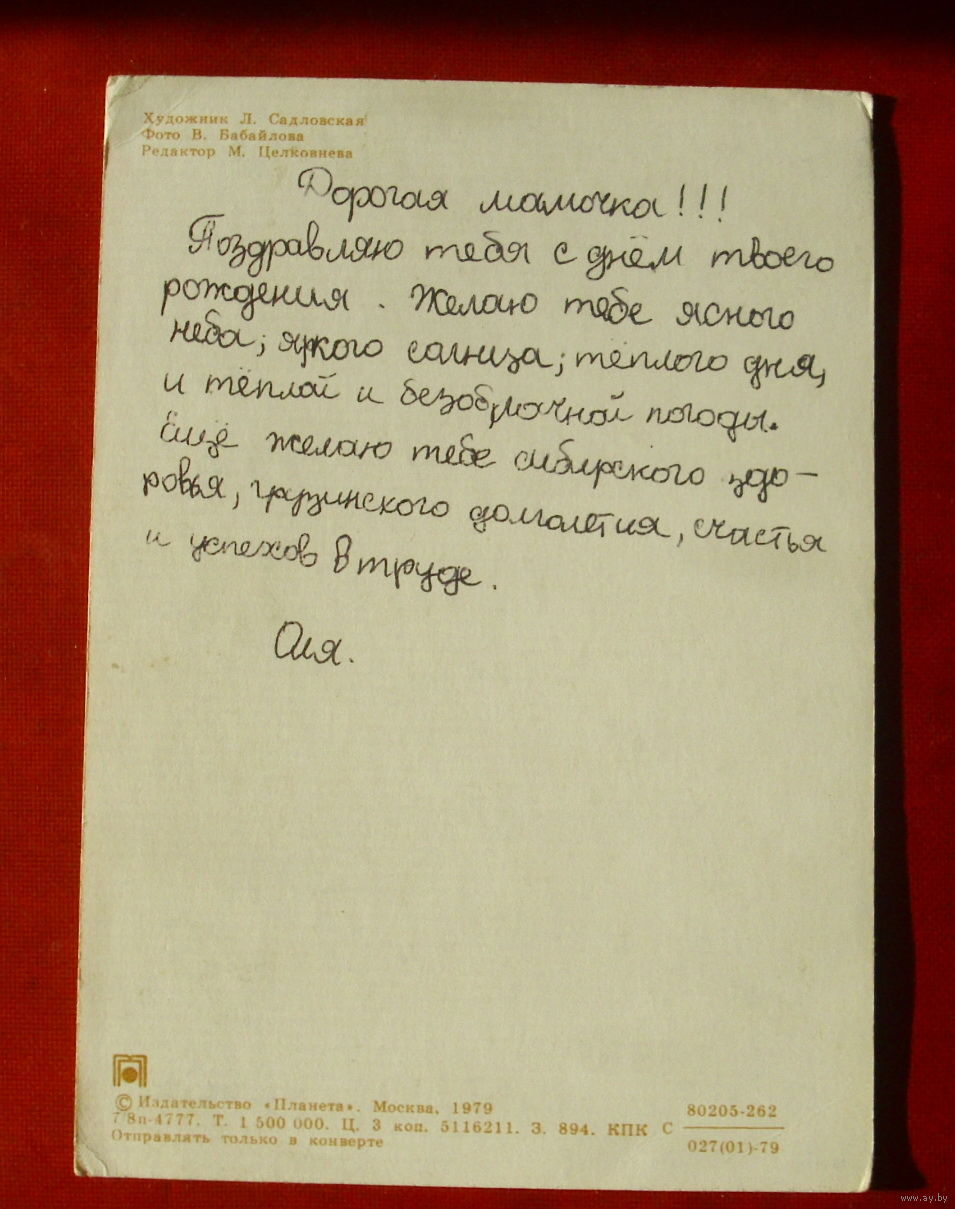 Художник Л. Садловская
Фото В. Бабайлова
Редактор М. Целковнева
Дорогая мамочка!!!
Поздравляю тебя с днём твоего
рождения. Желаю тебе ясного
неба; яркого солнца; тёплого дня,
и тёплой и безоблачной погоды.
Ещё желаю тебе сибирского здо-
ровья, грузинского долголетия, счастья
и успехов в труде.
Оля.
© Издательство «Планета». Москва, 1979
7 8п-4777. Т. 1 500 000. Ц. 3 коп. 5116211. З. 894. КПК С
Отправлять только в конверте
80205-262
027(01)-79
www.ay.by